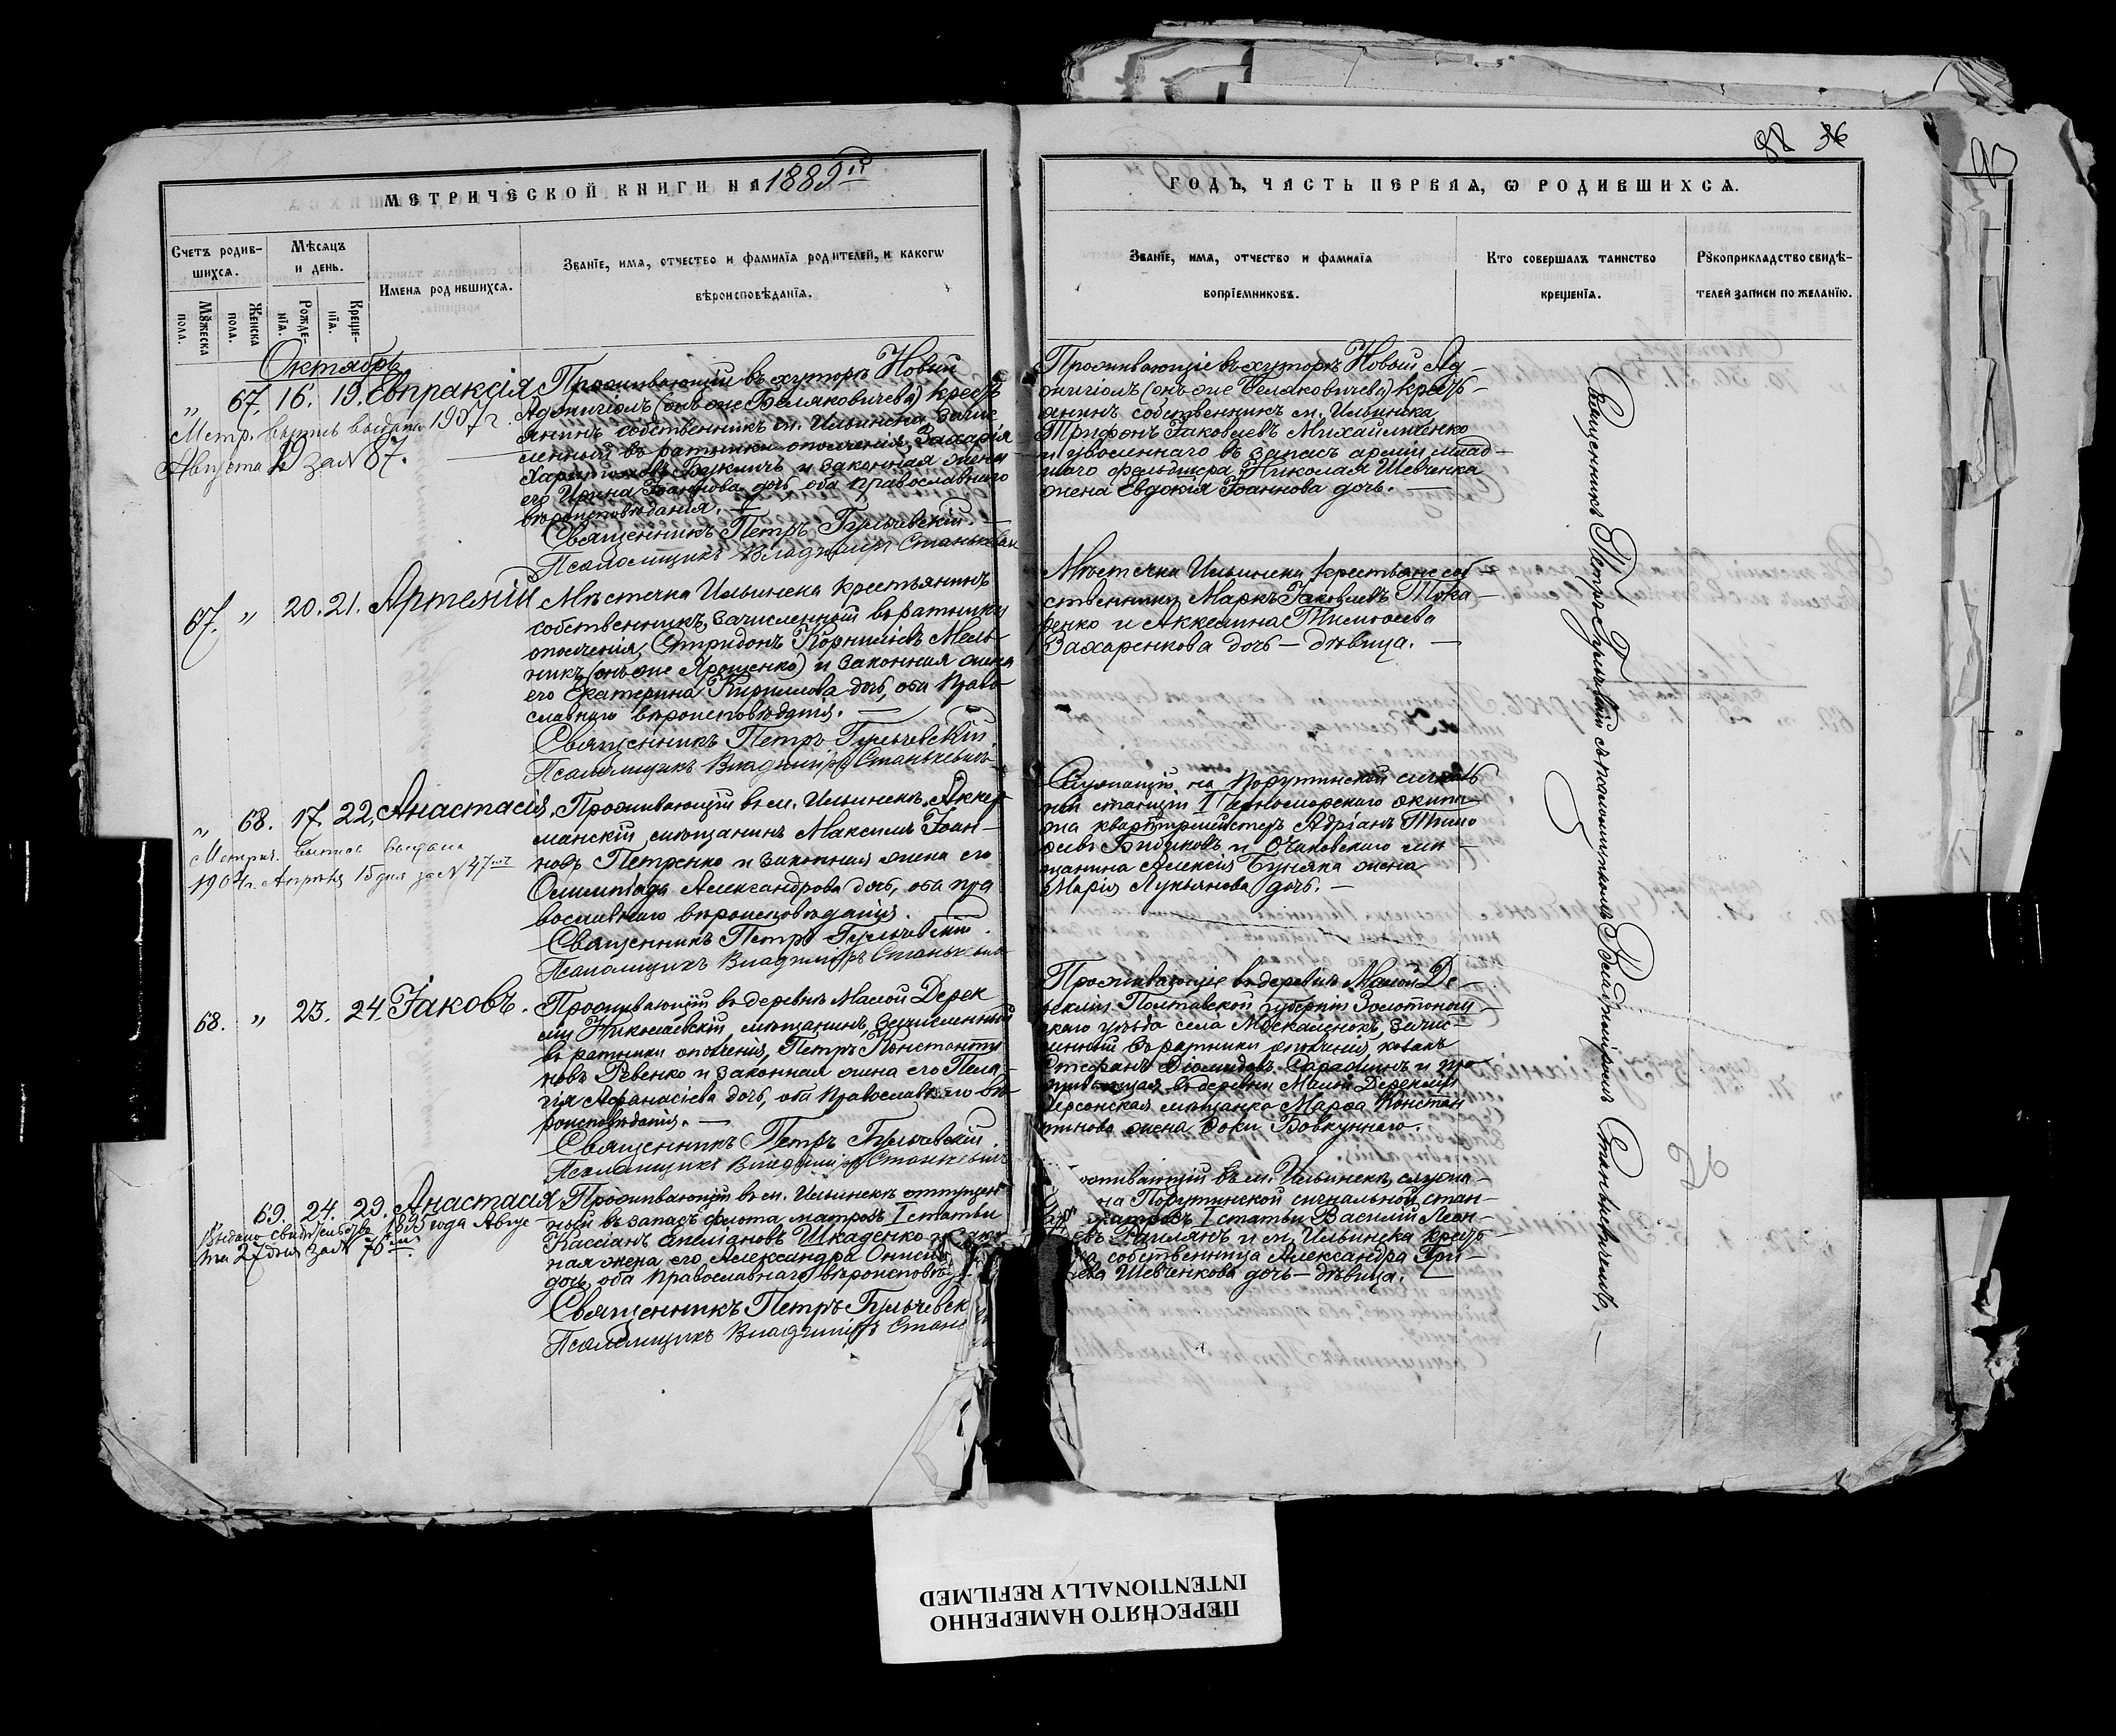 88 36
МЕТРИЧЕСКОЙ КНИГИ НА 1889й
ГОДЪ, ЧАСТЬ ПЕРВАЯ, Ѡ РОДИВШИХСЯ.
Счетъ родив-
шихся.
Мѣсяцъ
и день.
Имена родившихся.
Званїе, имя, отчество и фамилїя родителей, и какогѡ
вѣроисповѣданїя.
Мꙋжеска пола.
Женска пола.
Рожде-нїя.
Креще-нїя.
Званїе, имя, отчество и фамилїя
воспрїемниковъ.
Кто совершалъ таинство
крещенїя.
Рꙋкоприкладство свидѣ-
телей записи по желанїю.
Октябрь
„ 67. 16. 19. Евпраксія
Метр. выпись выдана 1907 г.
Августа за № 87.
Проживающій въ хуторѣ Новый
(онъ же Беляковичева) кресть
янинъ собственникъ м. Ильинска, зачис
ленный въ ратники ополченія, Захарія
и законная жена
его Ирина Іоаннова дочь, оба православнаго
вѣроисповѣданія. —
Священникъ Петръ Гульчевскій. —
Псаломщикъ Владиміръ Станькевич
Проживающіе въ хуторѣ Новый Ад-
жигіолъ (онъ же Беляковичева) кресть-
янинъ собственникъ м. Ильинска,
Трифонъ Іаковлевъ Михайличенко
и уволеннаго въ запасъ арміи млад-
шаго фельдшера Николая Шевченка
жена Евдокія Іоаннова дочь. —
67. „ 20. 21. Артемій
Мѣстечка Ильинска крестьянинъ
собственникъ, зачисленный въ ратники
ополченія, Спиридонъ Корниліевъ Мель-
никъ (онъ же Ярошенко) и законная жена
его Екатерина Кириллова дочь, оба Право
славнаго вѣроисповѣданія. —
Священникъ Петръ Гульчевскій.
Псаломщикъ Владиміръ Станькевичъ
Мѣстечка Ильинска крестьяне соб-
ственники Маркъ Іаковлевъ Тока-
ренко и Аккелина Тимоѳеева
Захаренкова дочь — дѣвица. —
„ 68. 17. 22. Анастасія.
Метрич. выпись выдана
1904 г. Апрѣля 15 дня за № 47
Проживающій въ м. Ильинскѣ, Аккер
манскій мѣщанинъ Максимъ Іоан-
новъ Петренко и законная жена его
Олимпіада Александрова дочь, оба пра
вославнаго вѣроисповѣданія.
Священникъ Петръ Гульчевскій.
Псаломщикъ Владиміръ Станькевич
Служащій на Порутинской сигналь
ной станціи I Черноморскаго экипа-
жа квартирмейстеръ Адріанъ Тимо
ѳеевъ и Очаковскаго мѣ-
щанина Алексія Буняка жена
Марія Лукьянова дочь. —
68. „ 23. 24. Іаковъ.
Проживающій въ деревнѣ Малой Дерек
ліи Николаевскій мѣщанинъ, зачисленный
въ ратники ополченія, Петръ Константи
новъ Ревенко и законная жена его Пела-
гія Аѳанасіева дочь, оба Православнаго вѣ-
роисповѣданія. —
Священникъ Петръ Гульчевскій.
Псаломщикъ Владиміръ Станькевичъ
Проживающіе въ деревнѣ Малой Де-
рекліи Полтавской губерніи Золотонош-
скаго уѣзда села Москаленокъ, зачис-
ленный въ ратники ополченія козакъ
Стефанъ Діомидовъ и про
живающая въ деревнѣ Малой Дерекліи
Херсонская мѣщанка Марѳа Констан
тинова жена Ѳоки Бовкуннаго.
69. 24. 29. Анастасія
Выдано свидѣтельство 1895 года Авгус-
та 27 дня за № 75
Проживающій въ м. Ильинскѣ отпущен
ный въ запасъ флота матросъ I статьи
Кассіанъ Емеліановъ Шкаденко и зако
ная жена его Александра
дочь, оба Православнаго вѣроисповѣ
Священникъ Петръ Гульчевск
Псаломщикъ Владиміръ Стань
оживающій въ м. Ильинскѣ, служа-
на Порутинской сигнальной стан-
матросъ I статьи Василій Леон-
и м. Ильинска кресть-
ка собственница Александра Гри-
ева Шевченкова дочь — дѣвица. —
Священникъ Петръ Гульчевскій съ псаломщикомъ Владиміромъ Станькевичемъ. —
ПЕРЕСНЯТО НАМЕРЕННО
INTENTIONALLY REFILMED